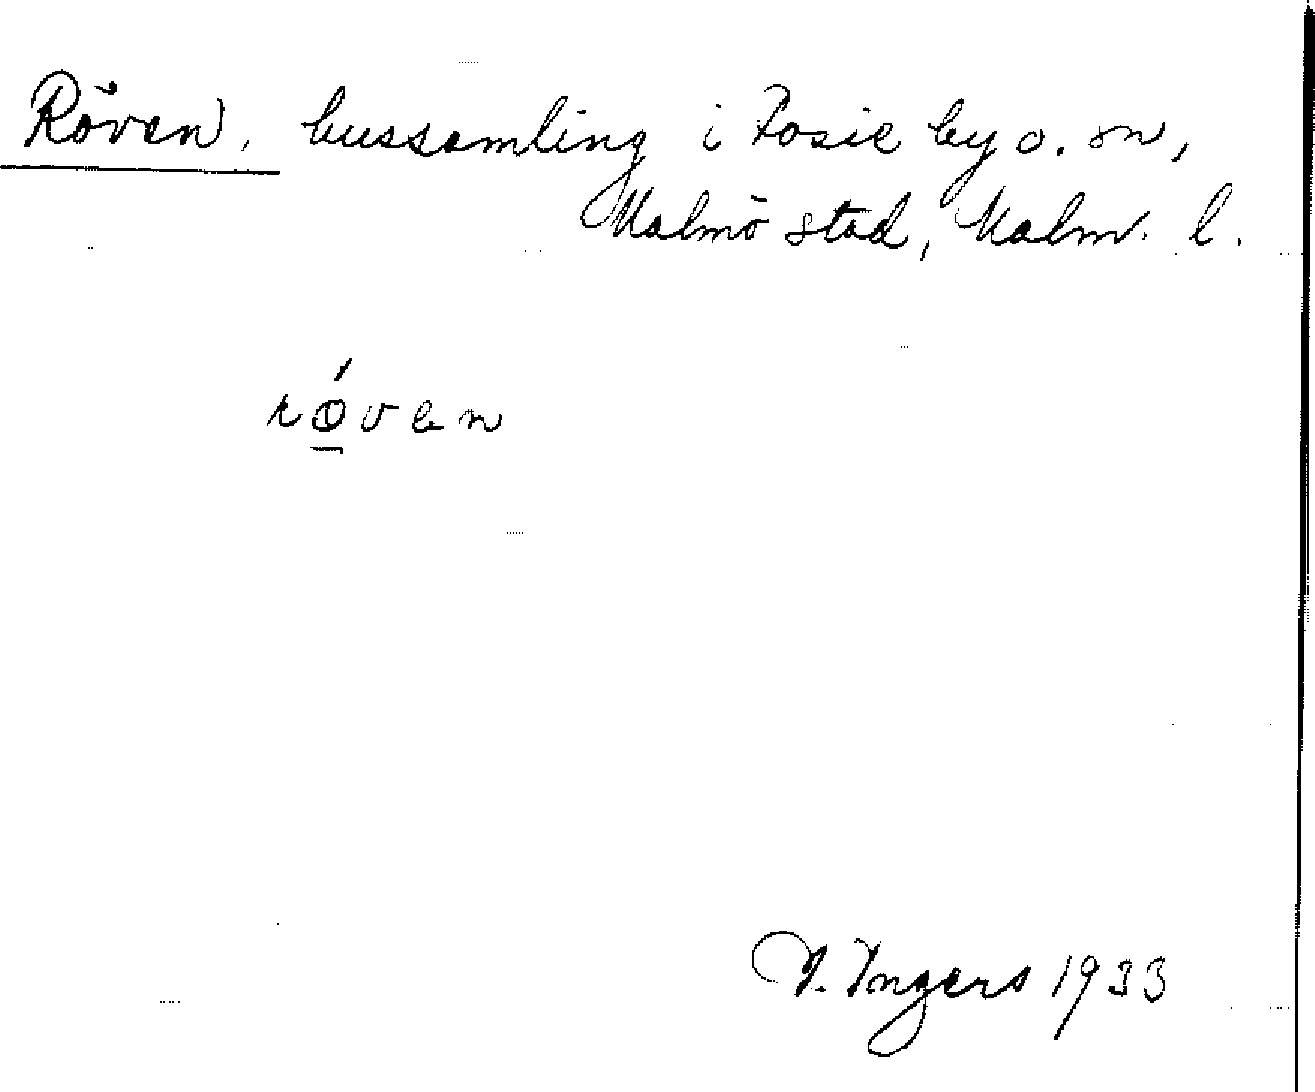 Röven, hussamling i Fosie by o. sn,
Malmö stad, Malm. l.
røven
I. Ingers 1933